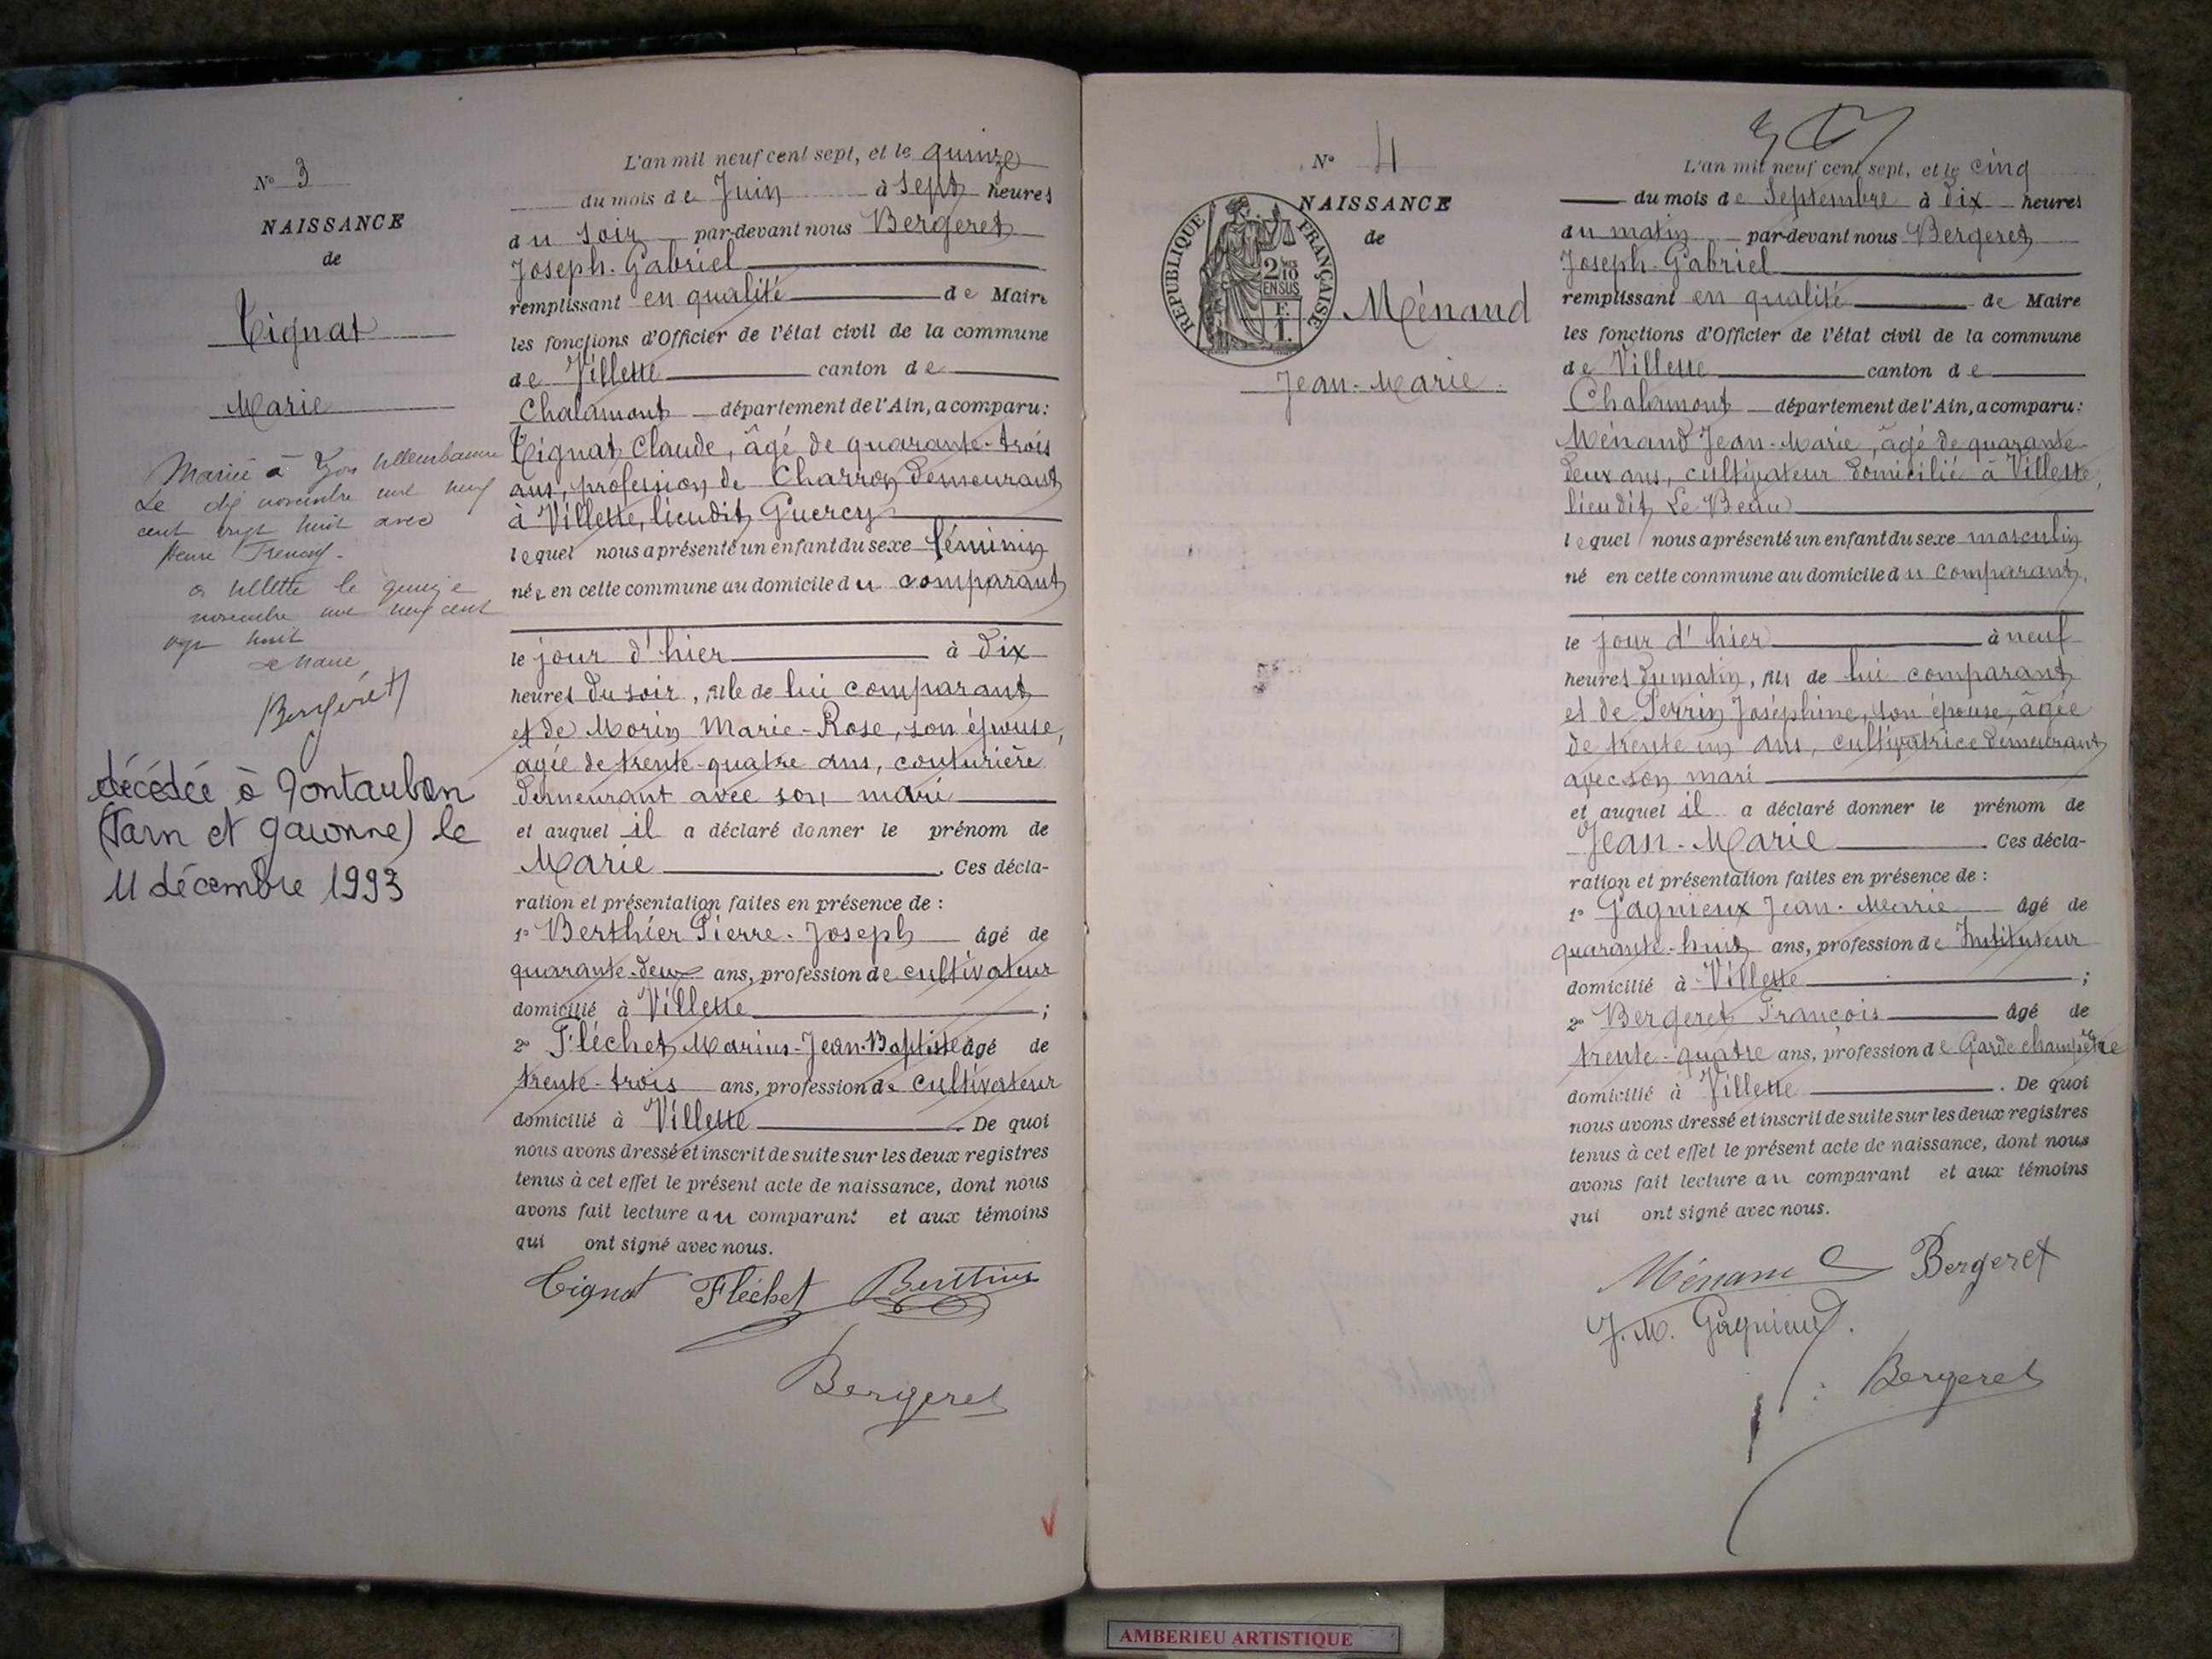 N° 3
NAISSANCE
de
Tignat
Marie
Mariée à Lyon Villeurbanne
Le dix novembre mil neuf
cent vingt huit avec
a Villette le quinze
novembre mil neuf cent
vingt huit
Le Maire
Bergeret
décédée à Montauban
(Tarn et Garonne) le
11 décembre 1993
L'an mil neuf cent sept, et le quinze
du mois de Juin à sept heures
du soir par-devant nous Bergeret
Joseph-Gabriel
remplissant en qualité de Maire
les fonctions d'Officier de l'état civil de la commune
de Villette canton de
Chalamont département de l'Ain, a comparu:
Tignat Claude, âgé de quarante-trois
ans, profession de Charron demeurant
à Villette, lieudit Guercy
lequel nous a présenté un enfant du sexe féminin
née en cette commune au domicile du comparant
le jour d'hier à dix
heures du soir, fille de lui comparant
et de Morin Marie-Rose, son épouse,
âgée de trente-quatre ans, couturière
demeurant avec son mari
et auquel il a déclaré donner le prénom de
Marie. Ces décla-
ration et présentation faites en présence de :
1° Berthier Pierre-Joseph âgé de
quarante-deux ans, profession de cultivateur
domicilié à Villette ;
2° Fléchet Marius-Jean-Baptiste âgé de
trente-trois ans, profession de cultivateur
domicilié à Villette. De quoi
nous avons dressé et inscrit de suite sur les deux registres
tenus à cet effet le présent acte de naissance, dont nous
avons fait lecture au comparant et aux témoins
qui ont signé avec nous.
Tignat Fléchet Berthier
Bergeret
N° 4
NAISSANCE
de
REPUBLIQUE FRANÇAISE
2/10
EN SUS
F.
1.
Ménand
Jean-Marie.
L'an mil neuf cent sept, et le cinq
du mois de Septembre à dix heures
du matin par-devant nous Bergeret
Joseph-Gabriel
remplissant en qualité de Maire
les fonctions d'Officier de l'état civil de la commune
de Villette canton de
Chalamont département de l'Ain, a comparu:
Ménand Jean-Marie, âgé de quarante-
deux ans, cultivateur domicilié à Villette,
lieudit Le Beau
lequel nous a présenté un enfant du sexe masculin
né en cette commune au domicile du comparant,
le jour d'hier à neuf
heures du matin, fils de lui comparant
et de Perrin Joséphine, son épouse, âgée
de trente un ans, cultivatrice demeurant
avec son mari
et auquel il a déclaré donner le prénom de
Jean-Marie. Ces décla-
ration et présentation faites en présence de :
1° Gagnieux Jean-Marie âgé de
quarante-huit ans, profession de Instituteur
domicilié à Villette ;
2° Bergeret François âgé de
trente-quatre ans, profession de Garde champêtre
domicilié à Villette. De quoi
nous avons dressé et inscrit de suite sur les deux registres
tenus à cet effet le présent acte de naissance, dont nous
avons fait lecture au comparant et aux témoins
qui ont signé avec nous.
Ménand Bergeret
J. M. Gagnieux.
Bergeret
AMBERIEU ARTISTIQUE